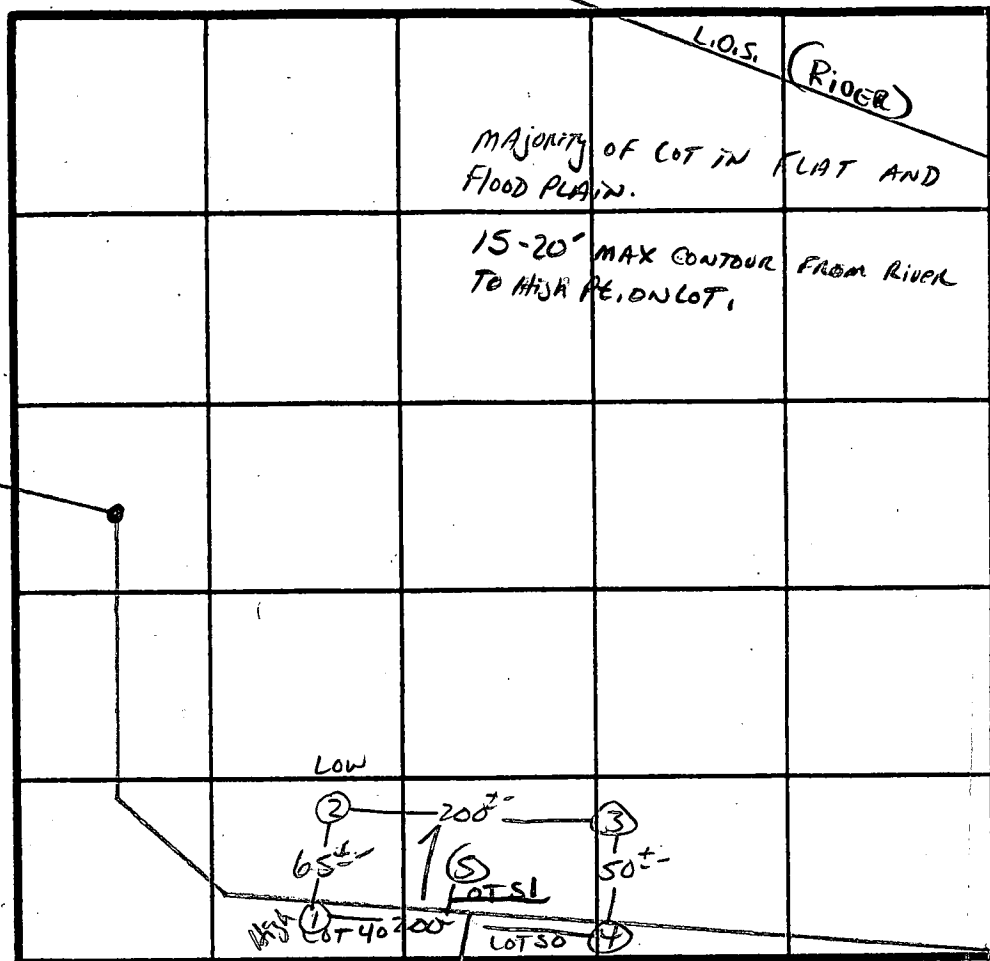 L.O.S. (RIVER)
MAJORITY OF LOT IN FLAT AND
FLOOD PLAIN.
15-20' MAX CONTOUR FROM RIVER
TO HIGH Pt. ON LOT.
LOW
2 200+- 3
65+- 50+-
5
LOT 51
High 1 LOT 40 200- LOT 50 4